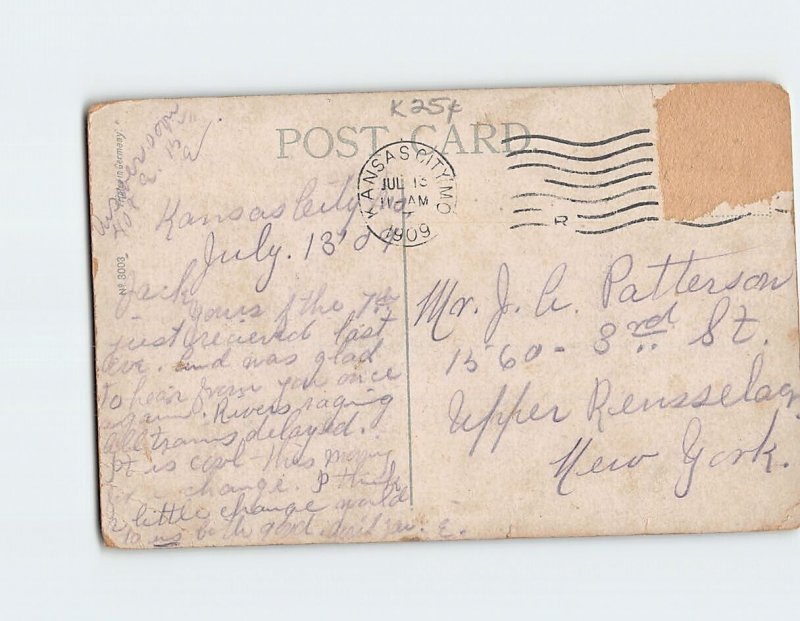 K 25¢
POST CARD
KANSAS CITY, MO.
JUL 13
11 AM
1909
R
Made in Germany
Nº 8003
Ans
Kansas City, Mo
July. 13 '09
Jack
Yours of the 7th
just recieved last
eve. and was glad
to hear from you once
again. Rivers raging
all trains delayed.
It is cool this morning
for a change. I think
a little change would
do us both good.
Mr. J. A. Patterson
1560 - 3rd St.
Upper Rensselaer
New York.